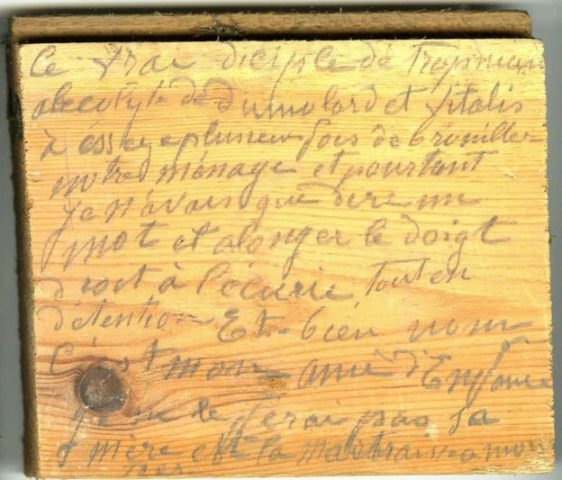 Ce vrai diciple de Tropmann
alecolyte de Dumolard et Vitalis
à ésseye plusieur fois de brouiller
notre ménage et pourtant
je n'avais que dire un
mot et alonger le doigt
droit à l'écurie, tout en
détention Et bien nom
C'est mon ami d'Enfance
je ne le ferai pas sa
mère est la maitraise a mon
per